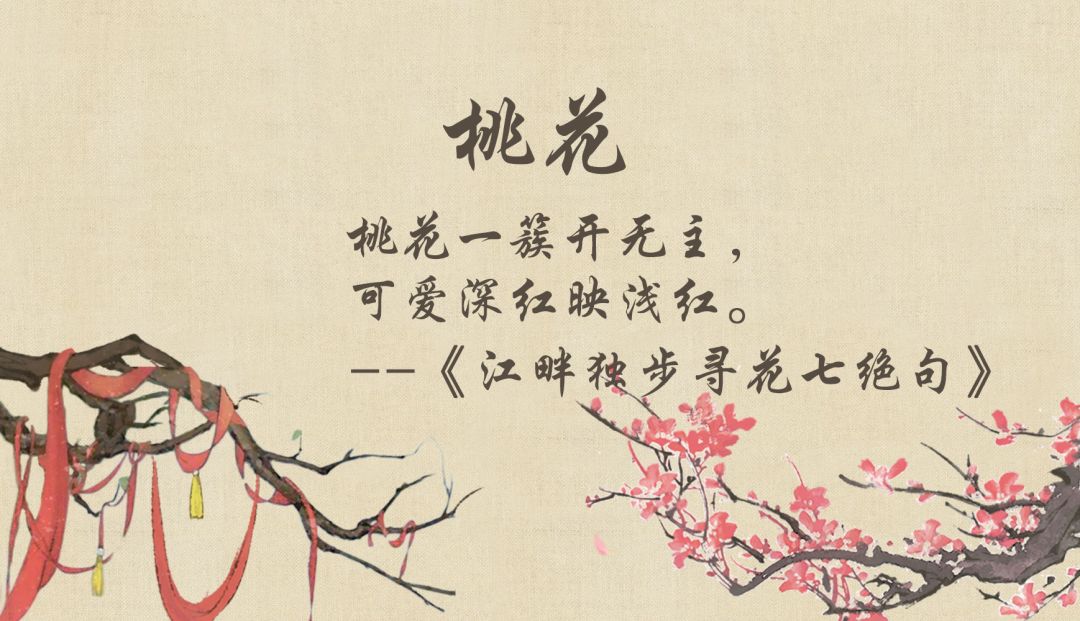 桃花
桃花一簇开无主，
可爱深红映浅红。
--《江畔独步寻花七绝句》